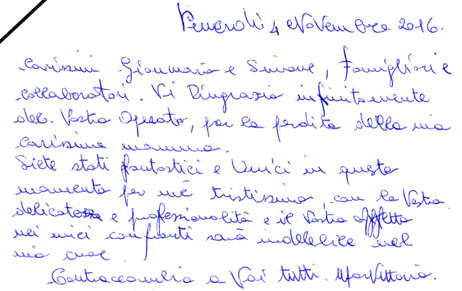 Venerdì 4 Novembre 2016.
Carissimi Gianmaria e Simone, Famigliari e
collaboratori. Vi Ringrazio infinitamente
del Vostro Operato, per la perdita della mia
carissima mamma.
Siete stati fantastici e Unici in questo
momento per me tristissimo, con la Vostra
delicatezza e professionalità e il Vostro affetto
nei miei confronti sarà indelebile nel
mio cuore.
Contraccambio a Voi tutti.